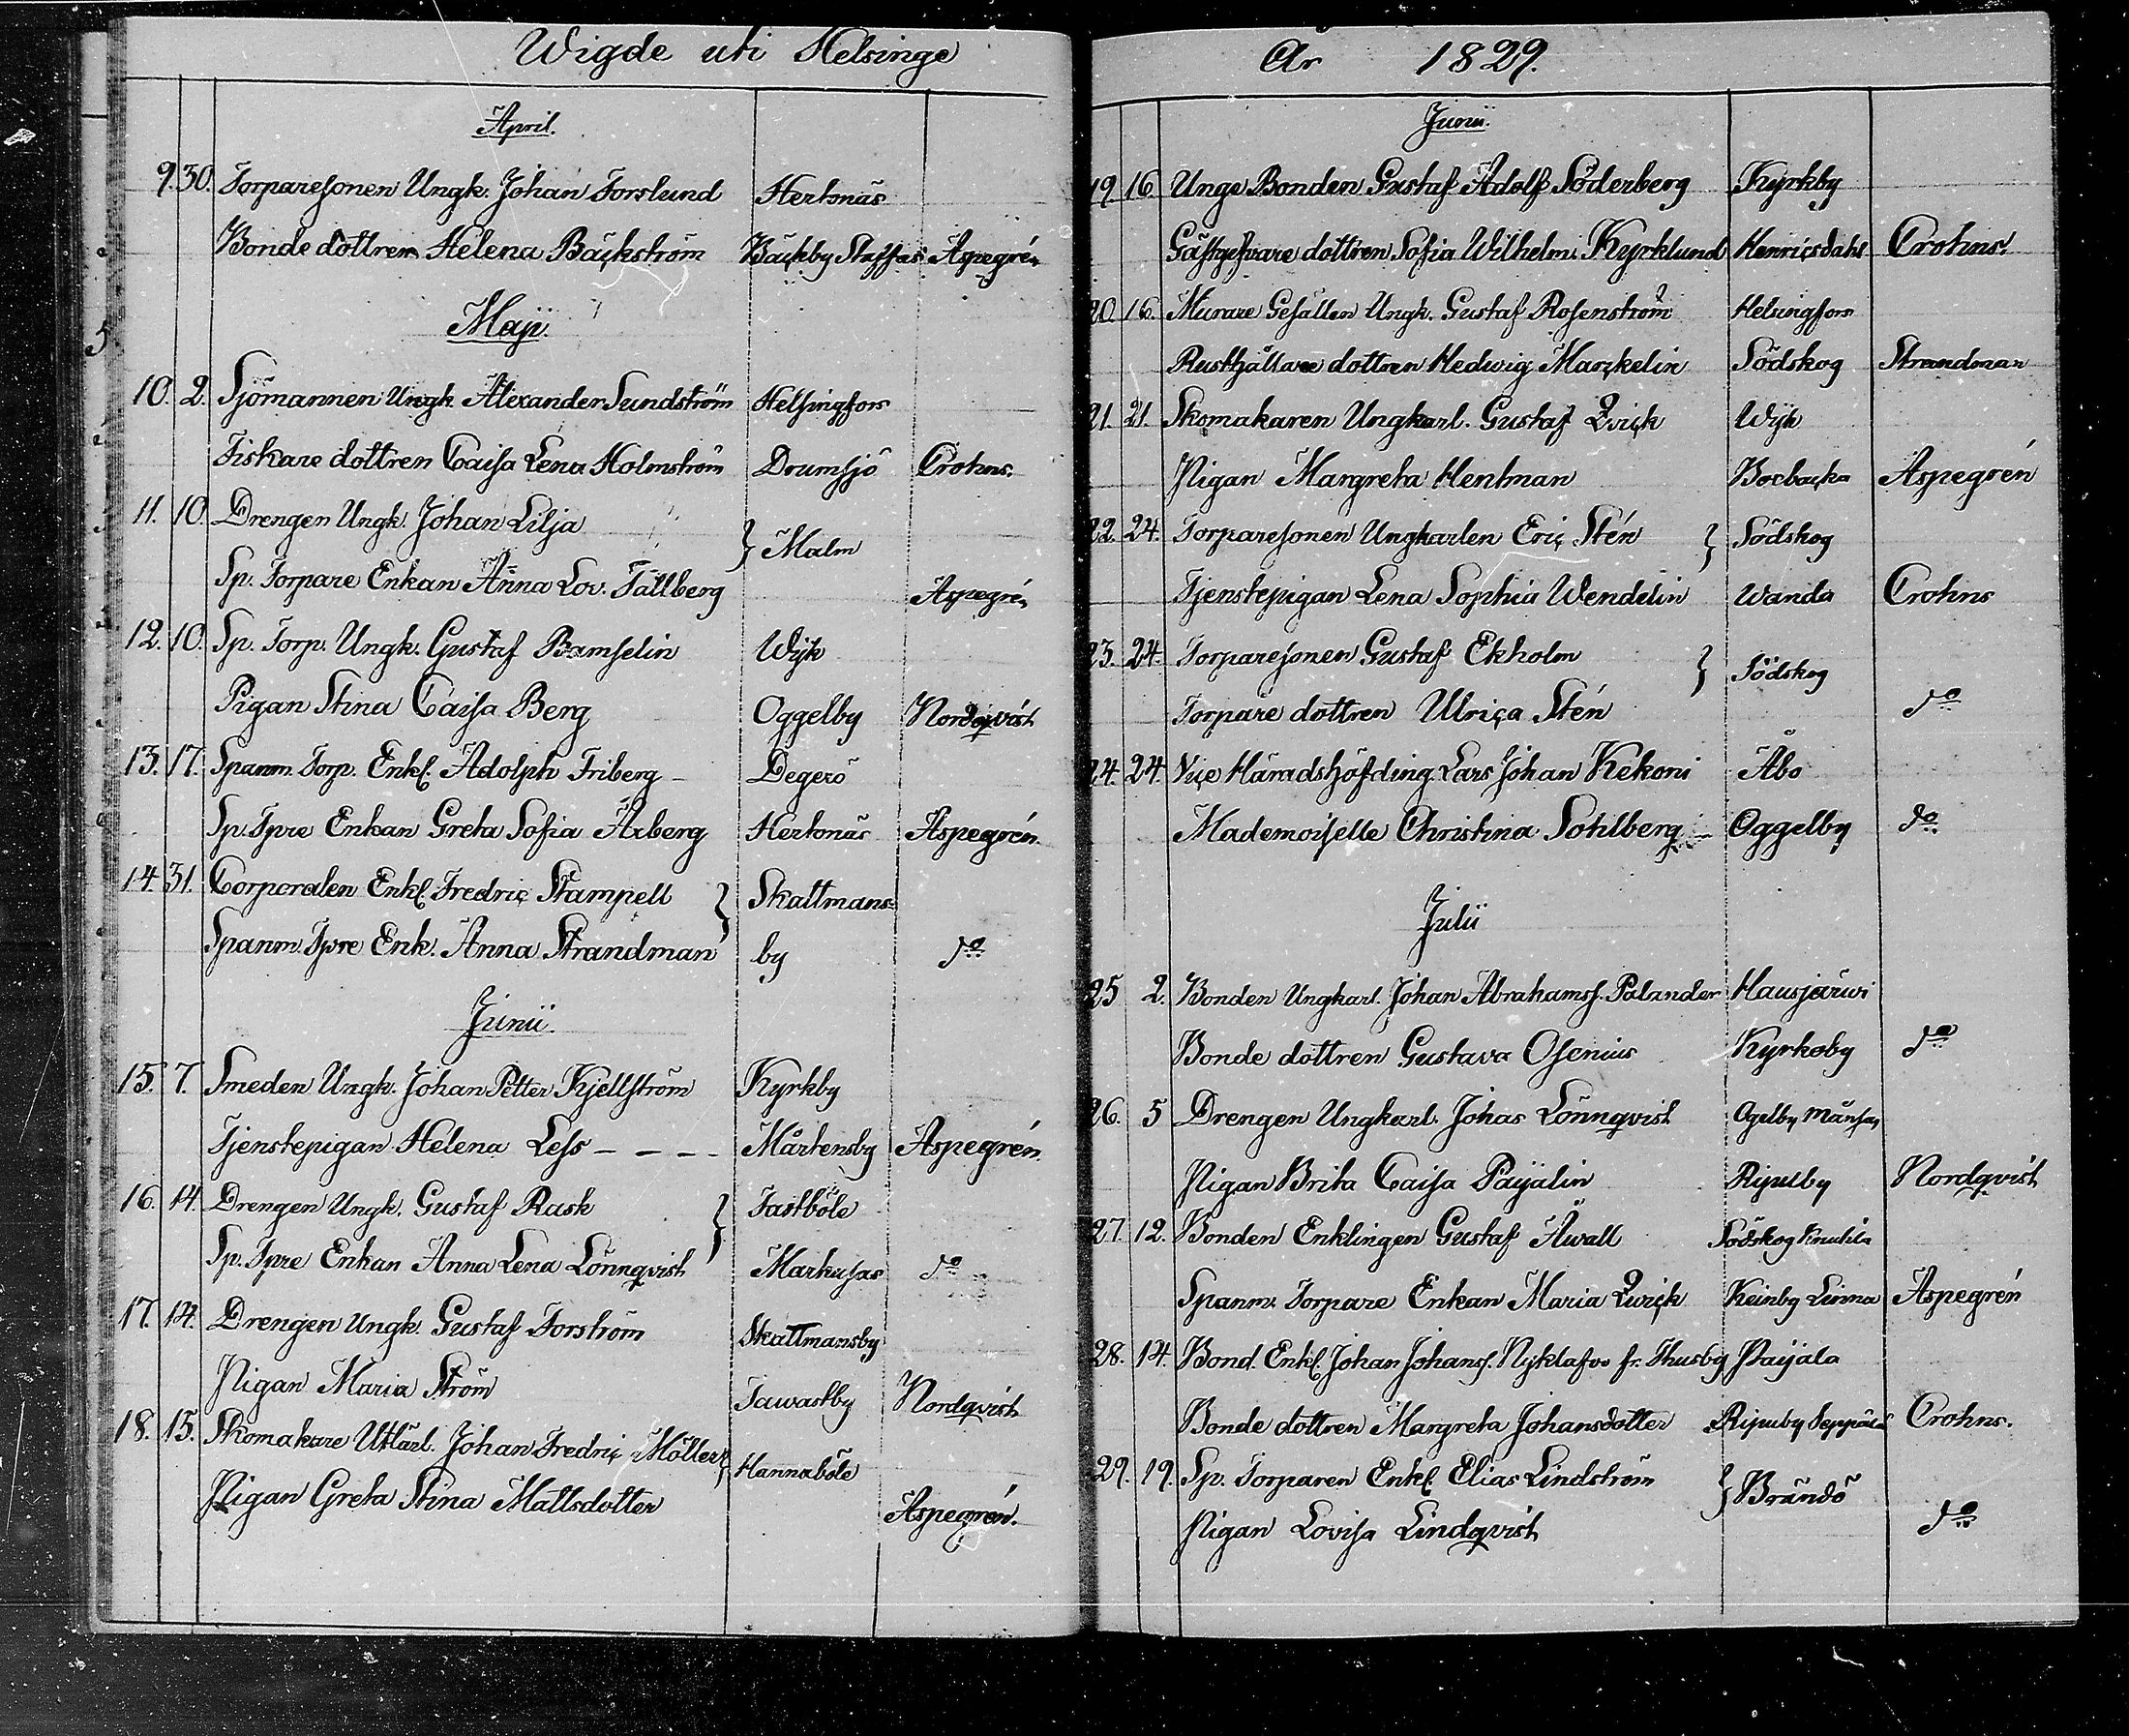 Wigde uti Helsinge
April.
9. 30. Torparesonen Ungk. Johan Forslund Hertonäs
Bonde dottren Helena Bäckström Bäckby Staffas Aspegrén
Maji.
10. 2. Sjömannen Ungk. Alexander Sundström Helsingfors
Fiskare dottren Caisa Lena Holmström Drumsjö Crohns.
11. 10. Drengen Ungk. Johan Lilja } Malm
Sp. Torpare Enkan Anna Lov. Fällberg Aspegrén
12. 10. Sp. Torp. Ungk. Gustaf Bamselin Wijk
Pigan Stina Caisa Berg Oggelby Nordqvist
13. 17. Spanm. Torp. Enkl. Adolph Friberg Degerö
Sp. Tpre Enkan Greta Sofia Årberg Hertonäs Aspegrén
14. 31. Corporalen Enkl. Fredric Stampell } Skattmans-
Spanm. Tpre Enk. Anna Strandman by do
Junii.
15. 7. Smeden Ungk. Johan Petter Kjellström Kyrkby
Tjenstepigan Helena Less - - - - Mårtensby Aspegrén.
16. 14. Drengen Ungk. Gustaf Rask } Fastböle
Sp. Tpre Enkan Anna Lena Lönnqvist Markusas do
17. 14. Drengen Ungk. Gustaf Forström Skattmansby
Pigan Maria Ström Tawastby Nordqvist
18. 15. Skomakare Utlärl. Johan Fredric Möller } Hannaböle
Pigan Greta Stina Mattsdotter Aspegrén.
År 1829.
Junii.
19. 16. Unge Bonden Gustaf Adolf Söderberg Kyrkby
Gästgifvare dottren Sofia Wilhelm. Kyrklund Henricsdahl Crohns.
20. 16. Murare Gesällen Ungk. Gustaf Rosenström Helsingfors
Rusthållare dottren Hedwig Marckelin Södskog Strandman
21. 21. Skomakaren Ungkarl. Gustaf Qvick Wijk
Pigan Margreta Hentman Bocbacka Aspegrén
22. 24. Torparesonen Ungkarlen Eric Stén } Södskog
Tjenstepigan Lena Sophia Wendelin Wanda Crohns
23. 24. Torparesonen Gustaf Ekholm } Södskog
Torpare dottren Ulrica Stén do
24. 24. Vice Häradshöfding Lars Johan Kekoni Åbo
Mademoiselle Christina Sohlberg Oggelby do
Julii
25 2. Bonden Ungkarl. Johan Abrahamss. Palander Hausjärwi
Bonde dottren Gustava Osenius Kyrkoby do
26. 5 Drengen Ungkarl. Johas Lönnqvist Ogelby Månsas
Pigan Brita Caisa Paijalin Ripuby Nordqvist
27. 12. Bonden Enklingen Gustaf Åwall Södskog Knutila
Spanm. Torpare Enkan Maria Qwick Keinby Linma Aspegrén
28. 14. Bond. Enkl. Johan Johanss. Nyklafvo fr. Thusby Paijala
Bonde dottren Margreta Johansdotter Ripuby Seppälä Crohns.
29. 19. Sp. Torparen Enkl. Elias Lindström } Brändö
Pigan Lovisa Lindqvist do